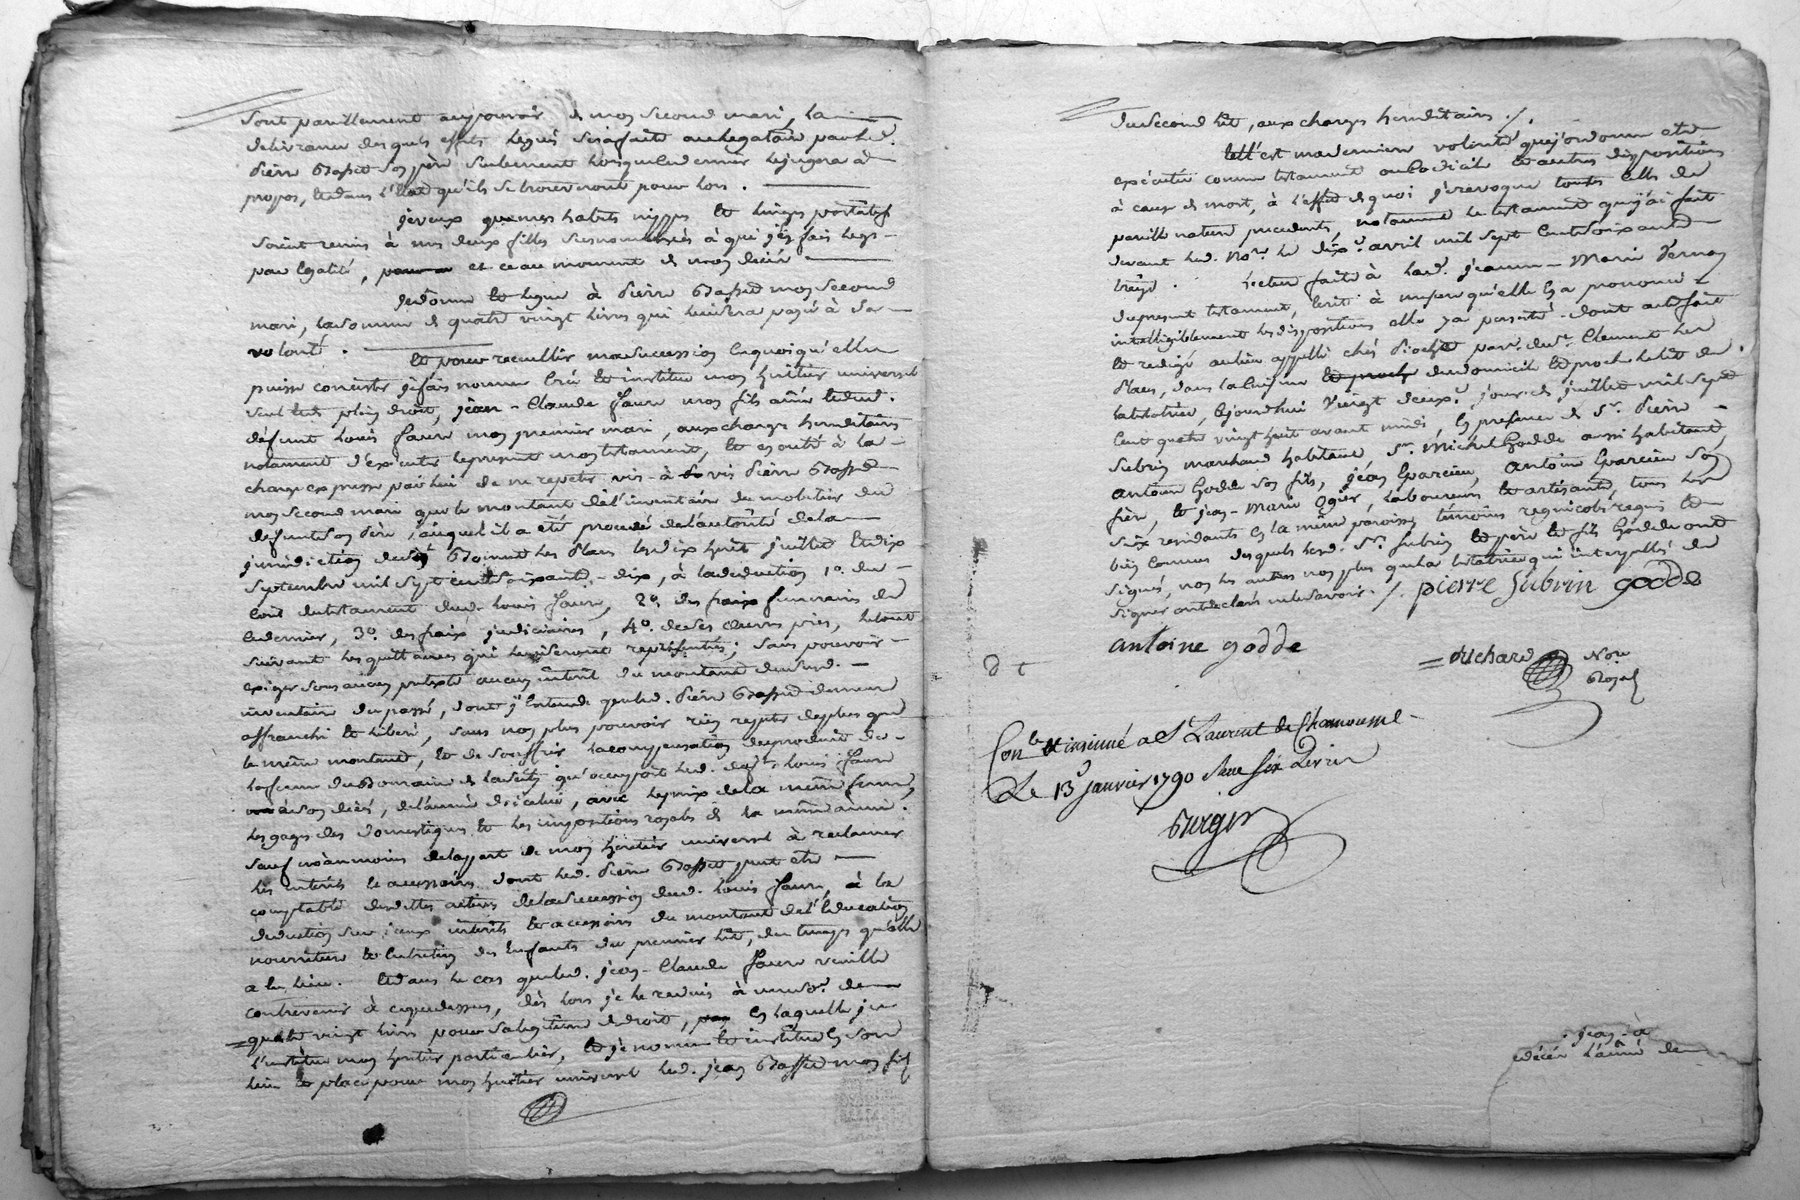 sont pareillement au pouvoir de mon second mari, la
delivrance desquels effets legués sera faite au legataire par led.
Pierre Basset son père seulement lorsque ce dernier le jugera à
propos, et dans l'état qu'ils se trouveront pour lors.
je veux que mes habits nippes et linges portatifs
soient remis à mes deux filles susnommées à qui j'en fais legs
par égalité, et ce au moment de mon décès
je donne et legue à Pierre Basset mon second
mari, la somme de quatre vingt livres qui lui sera payée à sa
volonté.
et pour recueillir ma succession en quoi qu'elle
puisse consister je fais nomme crée et institue mon héritier universel
seul et de plein droit, jean-Claude faure mon fils ainé et dud.
défunt Louis faure mon premier mari, aux charges hereditaires
notament d'executer le present mon testament, et en outre à la
charge expresse par lui de ne repeter vis-à-vis Pierre Basset
mon second mari que le montant de l'inventaire du mobilier du
defunt son père, auquel il a été procédé de l'autorité de la
juridiction de les dix huit juillet et dix
septembre mil sept cent soixante-dix, à la deduction 1o. du
coût du testament dud. Louis faure, 2o. des fraix funeraires de
ce dernier, 3o. des fraix judiciaires, 4o. de ses œuvres pies, le tout
suivant les quittances qui lui seront representées; sans pouvoir
exiger sous aucun pretexte aucun interet du montant dud.
inventaire du passé, dont j'entends que led. Pierre Basset demeure
affranchi et liberé, sans non plus pouvoir rien repeter de plus que
le même montant, et de souffrir la compensation du produit de
la ferme du Domaine de qu'occupoit led. deft. Louis faure
à son décès, de l'année d'icelui, avec le prix de la même ferme,
les gages des domestiques et les impositions royales de la même année.
sauf néanmoins de la part de mon héritier universel à reclamer
les interets et accessoires dont led. Pierre Basset peut etre
comptable des dettes actives de la succession dud. Louis faure, à la
deduction sur iceux interets et accessoires du montant de l'éducation
nourriture et entretien des enfants du premier lit, du temps qu'elle
a eu lieu. et dans le cas que led. jean-Claude faure veuille
contrevenir à ce que dessus, dès lors je le reduis à
quatre vingt livres pour sa légitime de droit, en laquelle je
l'institue mon héritier particulier, et je nomme et institue en son
lieu et place pour mon héritier universel led. jean Basset mon fils
du second lit, aux charges hereditaires ./.
telle est ma derniere volonté que j'ordonne etre
exécutée comme testament codicile et autres dispositions
à cause de mort, à l'effet de quoi je revoque toutes celles de
pareille nature precedentes, notament le testament que j'ai fait
devant led. Nore. le dixe. avril mil sept cent soixante
treize. Lecture faite à lad. jeanne-Marie Vernay
du present testament, écrit à mesure qu'elle en a prononcé
intelligiblement les dispositions elle y a persisté. Dont acte fait
et redigé au lieu appellé chés Piochet parse. de St. Clement les
Places, dans la cuisine du domicile et proche le lit de
la testatrice, cejourd'hui vingt deuxe. jour de juillet mil sept
cent quatre vingt huit avant midi, en presence de Sr. Pierre
Subrin marchand habitant, Sr. Michel Godde aussi habitant,
Antoine Godde son fils, jean Garcieu, Antoine Garcieu son
frère, et jean-Marie Ogier, laboureurs et artisants, tous les
six residants en la même paroisse, témoins requis et
bien connus desquels led. Sr. Subrin et père et fils Godde ont
signés, non les autres non plus que la testatrice qui interpellés de
signer ont declaré ne le savoir ./. pierre Subrin godde
antoine godde
Duchard Nore
Royal
D t
Conlé et insinué a St Laurent de Chamousset
Le 13 janvier 1790
jean à
décédé l'année de